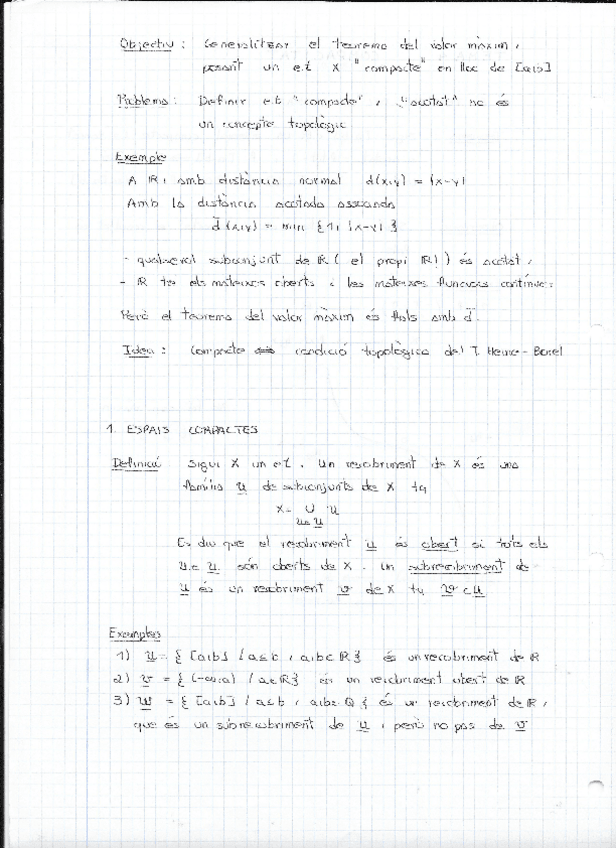 Objectiu : Generalitzar el teorema del valor màxim,
posant un e.t. X "compacte" en lloc de [a,b]
Problema : Definir e.t. "compacte", "acotat" no és
un concepte topològic
Exemple
A ℝ, amb distància normal d(x,y) = |x-y|
Amb la distància acotada associada
d̄(x,y) = min {1, |x-y|}
- qualsevol subconjunt de ℝ (el propi ℝ!) és acotat,
- ℝ té els mateixos oberts i les mateixes funcions contínues.
Però el teorema del valor màxim és fals amb d̄.
Idea : Compacte condició topològica del T. Heine-Borel
1. ESPAIS COMPACTES
Definició Sigui X un e.t. Un recobriment de X és una
família U de subconjunts de X tq
X = ∪ U
U∈U
Es diu que el recobriment U és obert si tots els
U∈U són oberts de X. Un subrecobriment de
U és un recobriment V de X tq V⊂U
Exemples
1) U = {[a,b] / a≤b, a,b∈ℝ} és un recobriment de ℝ
2) V = {(-∞,a) / a∈ℝ} és un recobriment obert de ℝ
3) W = {[a,b] / a≤b, a,b∈ℚ} és un recobriment de ℝ,
que és un subrecobriment de U, però no pas de V